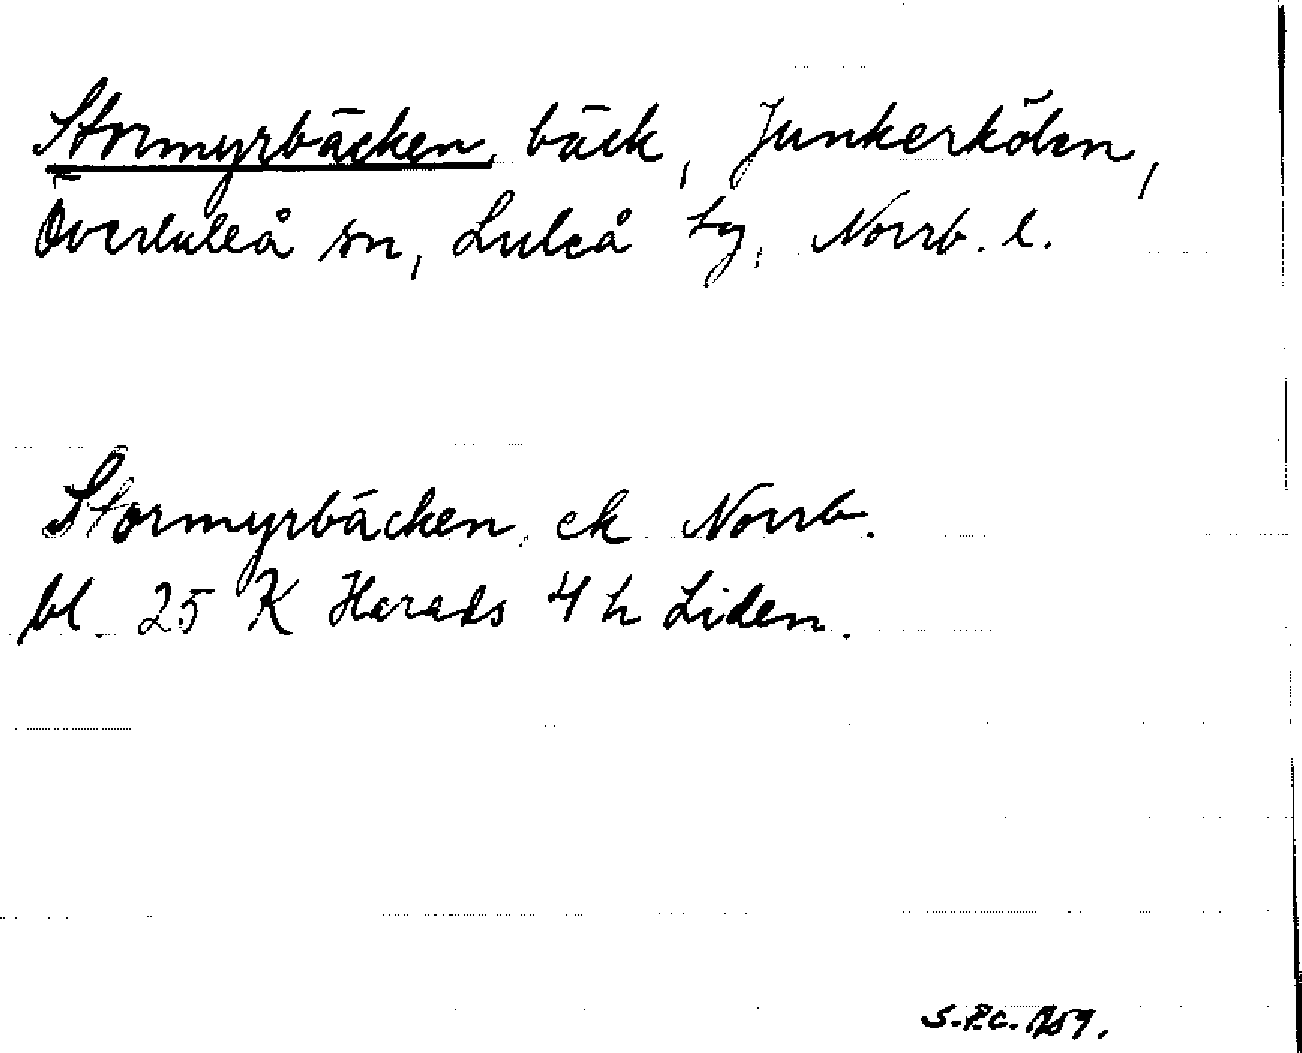 Stormyrbäcken, bäck, Junkerkölen,
Överluleå sn, Luleå tg, Norrb. l.
Stormyrbäcken, ek Norrb.
bl. 25 K Harads 4 h Liden.